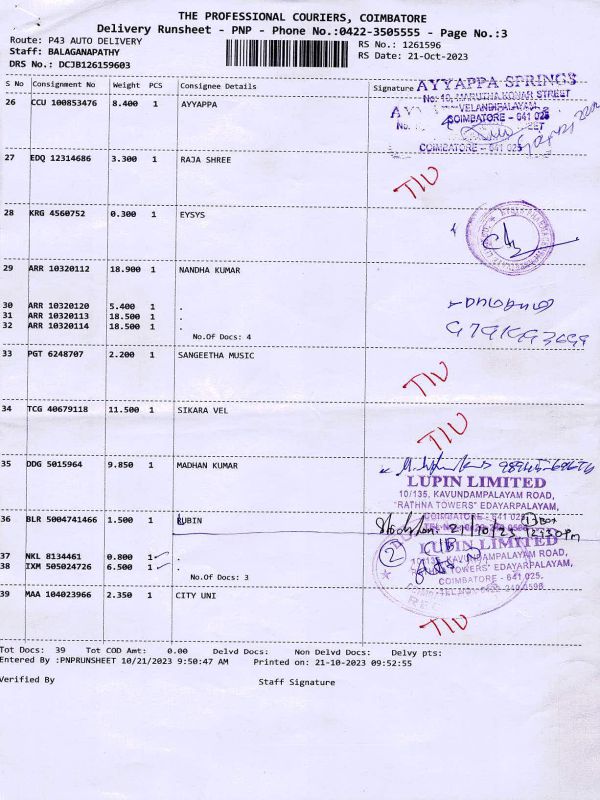 THE PROFESSIONAL COURIERS, COIMBATORE
Delivery Runsheet - PNP - Phone No.:0422-3505555 - Page No.:3
Route: P43 AUTO DELIVERY
Staff: BALAGANAPATHY
DRS No.: DCJB126159603
RS No.: 1261596
RS Date: 21-Oct-2023
S No Consignment No Weight PCS Consignee Details Signature
AYYAPPA SPRINGS
No: 10, MARUTHA KONAR STREET
VELANDIPALAYAM,
COIMBATORE - 641 025
26 CCU 100853476 8.400 1 AYYAPPA
COIMBATORE - 641 025
27 EDQ 12314686 3.300 1 RAJA SHREE
28 KRG 4560752 0.300 1 EYSYS
29 ARR 10320112 18.900 1 NANDHA KUMAR
30 ARR 10320120 5.400 1 .
31 ARR 10320113 18.500 1 .
32 ARR 10320114 18.500 1 .
No.Of Docs: 4
33 PGT 6248707 2.200 1 SANGEETHA MUSIC
34 TCG 40679118 11.500 1 SIKARA VEL
35 DDG 5015964 9.850 1 MADHAN KUMAR
LUPIN LIMITED
10/135, KAVUNDAMPALAYAM ROAD,
"RATHNA TOWERS" EDAYARPALAYAM,
COIMBATORE - 641 025.
36 BLR 5004741466 1.500 1 RUBIN
21/10/23 12:30pm
LUPIN LIMITED
10/135, KAVUNDAMPALAYAM ROAD,
"RATHNA TOWERS" EDAYARPALAYAM,
COIMBATORE - 641 025.
37 NKL 8134461 0.800 1 .
38 IXM 505024726 6.500 1 .
No.Of Docs: 3
39 MAA 104023966 2.350 1 CITY UNI
Tot Docs: 39 Tot COD Amt: 0.00 Delvd Docs: Non Delvd Docs: Delvy pts:
Entered By :PNPRUNSHEET 10/21/2023 9:50:47 AM Printed on: 21-10-2023 09:52:55
Verified By Staff Signature